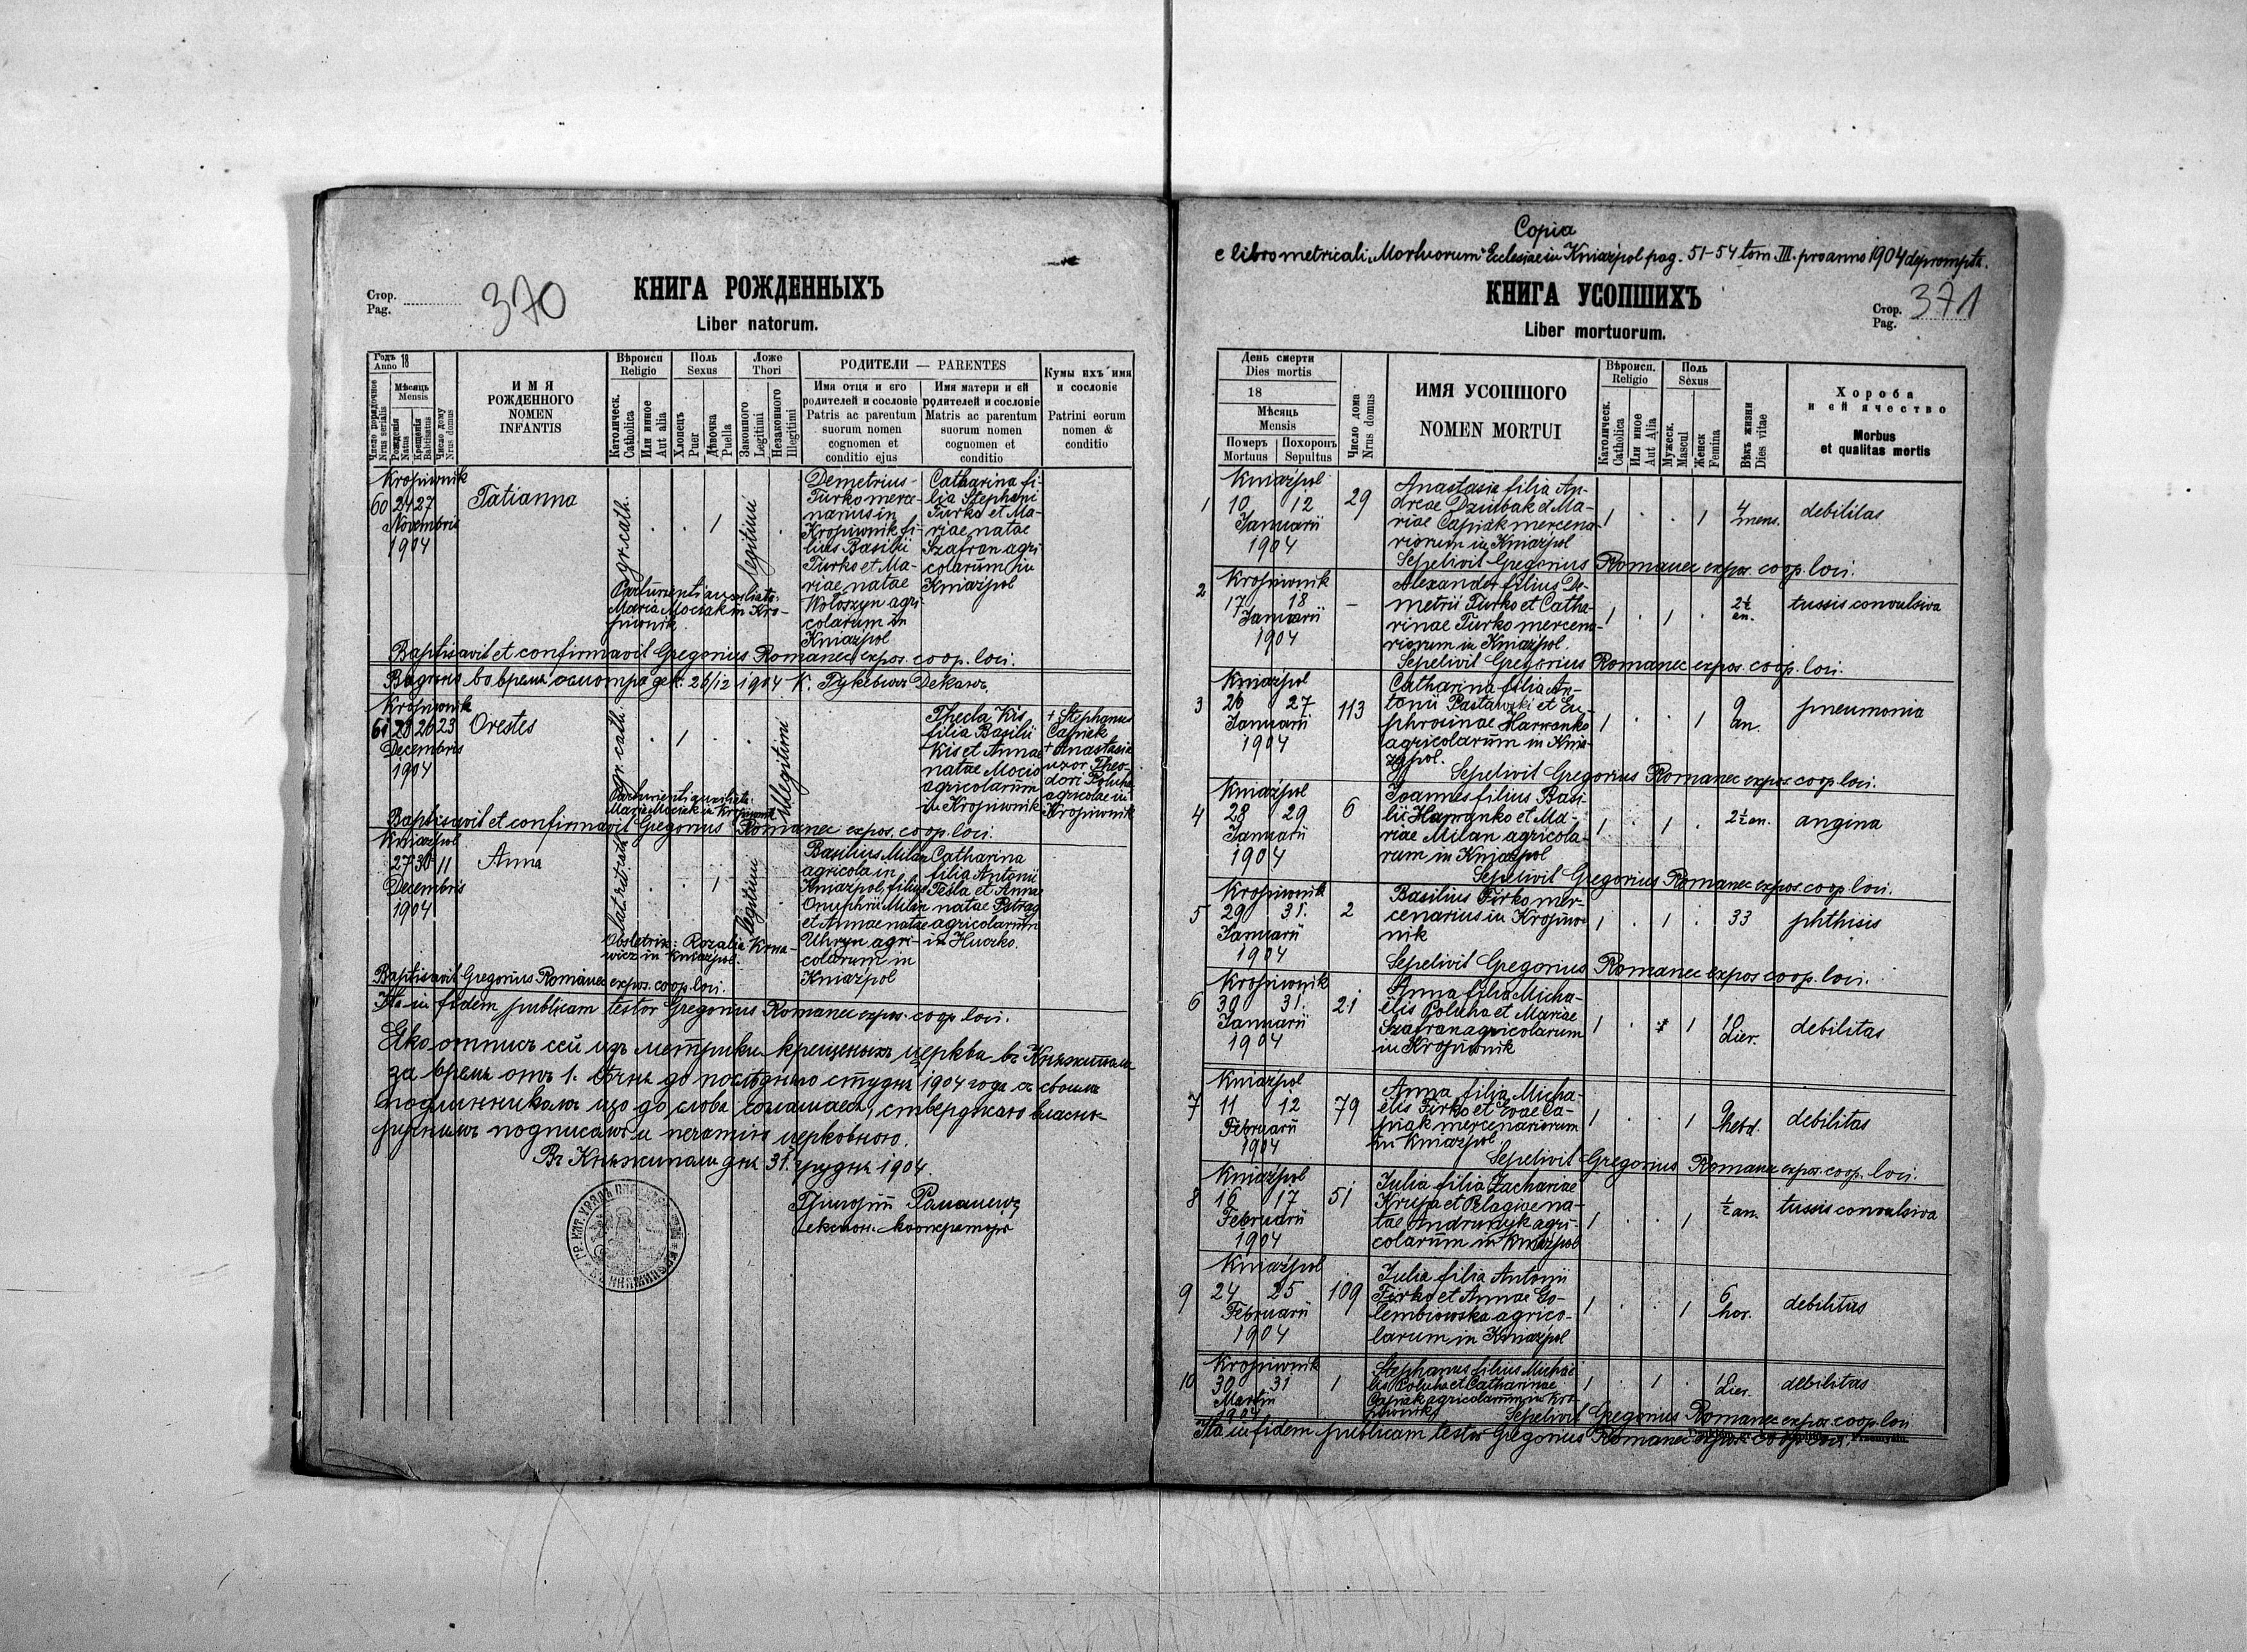 Стор.
Pag.
370
КНИГА РОЖДЕННЫХЪ
Liber natorum.
Годъ 18
Anno
Вѣроисп
Religio
Поль
Sexus
Ложе
Thori
РОДИТЕЛИ — PARENTES
Кумы ихъ имя
и сословіе
Patrini eorum
nomen &
conditio
Число порядочное
Nrus serialis
Мѣсяць
Mensis
Рожденія
Natus
Крещанія
Babtisatus
Число дому
Nrus domus
ИМЯ
РОЖДЕННОГО
NOMEN
INFANTIS
Католическ.
Catholica
Или иное
Aut alia
Хлопецъ
Puer
Дѣвочка
Puella
Законного
Legitimi
Незаконного
Illegitimi
Имя отця и его
родителей и сословіе
Patris ac parentum
suorum nomen
cognomen et
conditio ejus
Имя матери и ей
родителей и сословіе
Matris ac parentum
suorum nomen
cognomen et
conditio
Kropiwnik
60 24 27
Novembris
1904
Tatianna
gr. cath.
. . 1
legitimi
Demetrius
Turko merce-
narius in
Kropiwnik fi-
lius Basilii
Turko et Ma-
riae natae
Wołoszyn agri-
colarum in
Kniażpol
Catharina fi-
lia Stephani
Turko et Ma-
riae natae
Szafran agri
colarum in
Kniażpol
Parturienti auxiliata:
Maria Mociak in Kro-
piwnik
Baptisavit et confirmavit Gregorius Romanec expos. coop. loci.
26/12 1904
Kropiwnik
61 23 26 23
Decembris
1904
Orestes
gr. cath.
. 1 . .
illegitimi
Thecla Kis
filia Basilii
Kis et Annae
natae Mocio
agricolarum
in Kropiwnik
+ Stephanus
Capiak
+ Anastasia
uxor Theo-
dori Poluha
agricolae in
Kropiwnik
Parturienti auxiliata:
Maria Mociak in Kropiwnik
Baptisavit et confirmavit Gregorius Romanec expos. coop. loci.
Kniażpol
27 30 11
Decembris
1904
Anna
lat. rit. cath.
. . 1
legitimi
Basilius Milan
agricola in
Kniażpol, filius
Onuphrii Milan
et Annae natae
Uhryn agri-
colarum in
Kniażpol
Catharina
filia Antonii
Tesla et Annae
natae Petrag
agricolarum
in Huczko.
Obstetrix: Rozalia
in Kniażpol.
Baptisavit Gregorius Romanec expos. coop. loci.
Ita in fidem publicam testor Gregorius Romanec expos. coop. loci.
Яко отпись сей изъ метрики крещеныхъ церкве въ Княжполи
за время отъ 1. Сѣчня до послѣдняго студня 1904 года съ своимъ
подлинникомъ що до слова согласаеся, стверджаю власно-
ручнымъ подписомъ и печатію церковною.
Въ Княжполи дня 31. грудня 1904.
Григорій Романецъ
експон. кооператоръ
Copia
e libro metricali „Mortuorum" Ecclesiae in Kniażpol pag. 51-54 tom. III. pro anno 1904 deprompta.
КНИГА УСОПШИХЪ
Стор.
Pag.
371
Liber mortuorum.
День смерти
Dies mortis
18
Мѣсяць
Mensis
Померъ
Mortuus
Похоронъ
Sepultus
Число дома
Nrus domus
ИМЯ УСОПШОГО
NOMEN MORTUI
Вѣроисп.
Religio
Поль
Sexus
Католическ.
Catholica
Или иное
Aut Alia
Мужеск.
Mascul
Женск
Femina
Вѣкъ жизни
Dies vitae
Хороба
и ей ячество
Morbus
et qualitas mortis
Kniażpol
1 10 12 29
Januarii
1904
Anastasia filia An-
dreae Dziubak et Ma-
riae Capiak mercena-
riorum in Kniażpol
1 . . 1
4
mens.
debilitas
Sepelivit Gregorius Romanec expos. coop. loci.
Kropiwnik
2 17 18 -
Januarii
1904
Alexander filius De-
metrii Turko et Catha-
rinae Turko mercena-
riorum in Kniażpol.
1 . 1 .
2½
an.
tussis convulsiva
Sepelivit Gregorius Romanec expos. coop. loci.
Kniażpol
3 26 27 113
Januarii
1904
Catharina filia An-
tonii Pastawski et Eu-
phrosinae Hawranko
agricolarum in Knia-
żpol.
1 . . 1
9
an.
pneumonia
Sepelivit Gregorius Romanec expos. coop. loci.
Kniażpol
4 28 29 6
Januarii
1904
Joannes filius Basi-
lii Hawranko et Ma-
riae Milan agricola-
rum in Kniażpol
1 . 1 .
2½ an.
angina
Sepelivit Gregorius Romanec expos. coop. loci.
Kropiwnik
5 29 31. 2
Januarii
1904
Basilius Firko mer-
cenarius in Kropiw-
nik
1 . 1 .
33
phthisis
Sepelivit Gregorius Romanec expos. coop. loci.
Kropiwnik
6 30 31. 21
Januarii
1904
Anna filia Micha-
ëlis Poluha et Mariae
Szafran agricolarum
in Kropiwnik
1 . 1
10
Dier.
debilitas
Kniażpol
7 11 12 79
Februarii
1904
Anna filia Micha-
ëlis Firko et Evae Ca-
piak mercenariorum
in Kniażpol.
1 . . 1
9
hebd.
debilitas
Sepelivit Gregorius Romanec expos. coop. loci.
Kniażpol
8 16 17 51
Februarii
1904
Julia filia Zachariae
Krupa et Pelagiae na-
tae Andruszyk agri-
colarum in Kniażpol
1 . . 1
½ an.
tussis convulsiva
Kniażpol
9 24 25 109
Februarii
1904
Julia filia Antonii
Firko et Annae Go-
lembiowska agrico-
larum in Kniażpol
1 . . 1
6
hor.
debilitas
Kropiwnik
10 30 31 1
Martii
1904
Stephanus filius Michaë
lis Poluha et Catharinae
Capiak agricolarum in Kro-
piwnik
1 . 1 .
Dier.
debilitas
Sepelivit Gregorius Romanec expos. coop. loci
Ita in fidem publicam testor Gregorius Romanec expos. coop. loci.